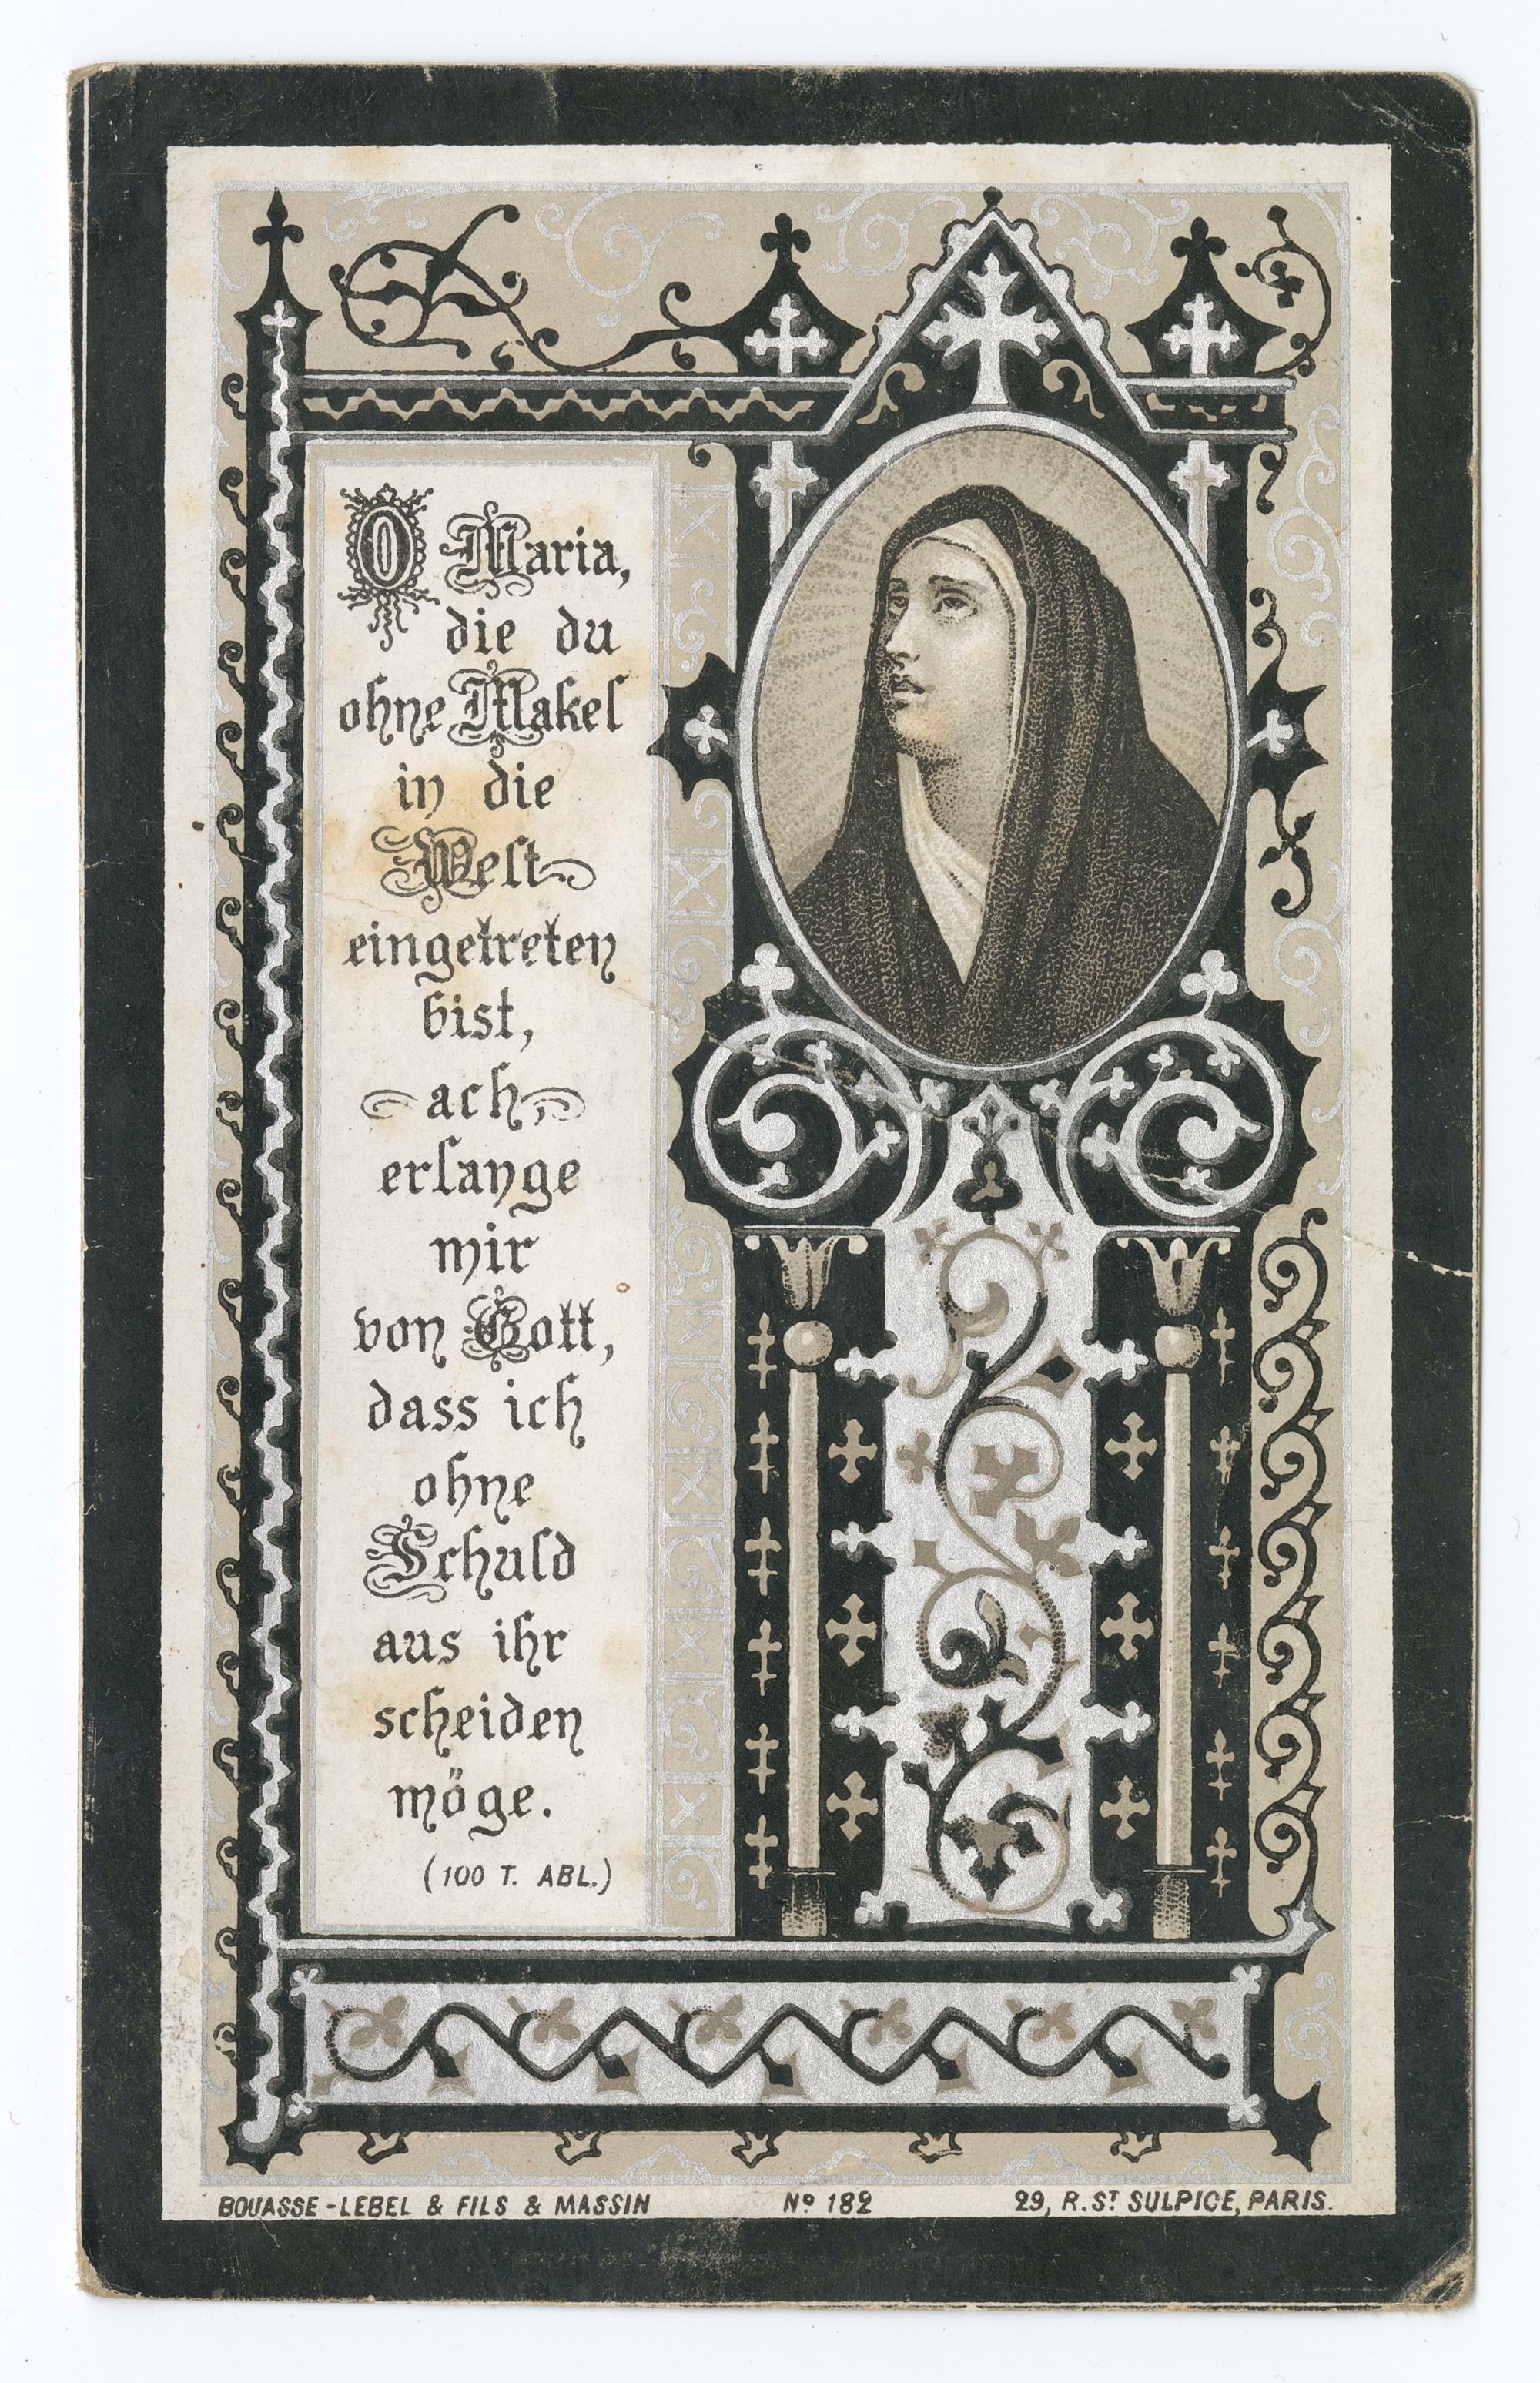 O Maria,
die du
ohne Makel
in die
Welt
eingetreten
bist,
ach,
erlange
mir
von Gott,
dass ich
ohne
Schuld
aus ihr
scheiden
möge.
(100 T. ABL.)
BOUASSE-LEBEL & FILS & MASSIN Nº 182 29, R. ST SULPICE, PARIS.